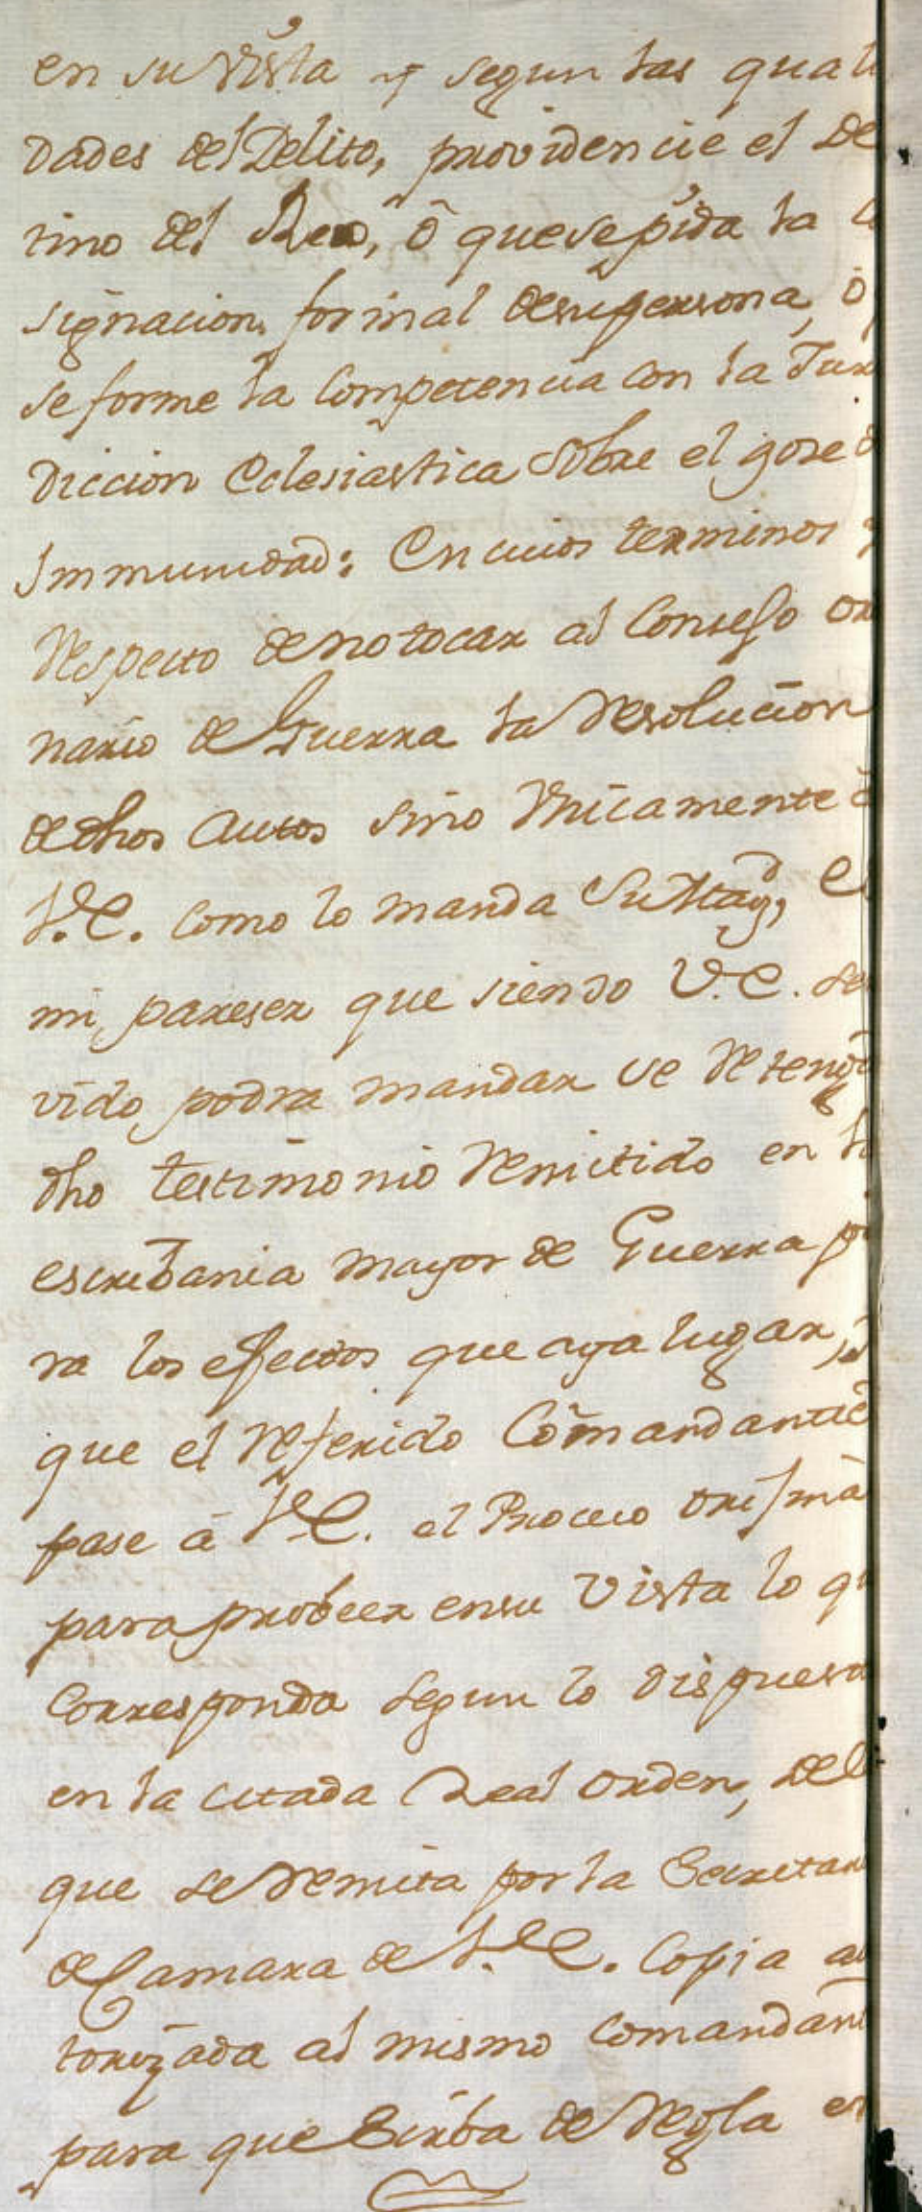 en su vista y segun las quali
dades del Delito, providencie el Des
tino del Reo, ô que se pida la co
signacion formal de su persona, ó
se forme la Competencia con la Juris
diccion Eclesiastica sobre el goze d
Immunidad: En cuios terminos y
respecto de no tocar al Consejo or
nario de Guerra la resolucion
de dhos autos sino Unicamente á
V.E. como lo manda Su Magd, es
mi pareser que siendo V.E. ser
vido podra mandar se retenga
dho testimonio remitido en la
escribania mayor de Guerra pa
ra los efectos que aya lugar, y
que el referido Comandante
pase á V.E. el Proceso orijinal
para probeer en su vista lo qu
Corresponda segun lo dispuesto
en la citada Real orden, de la
que se remita por la Secretari
de Camara de V.E. Copia au
torizada al mismo Comandant
para que sirba de regla en